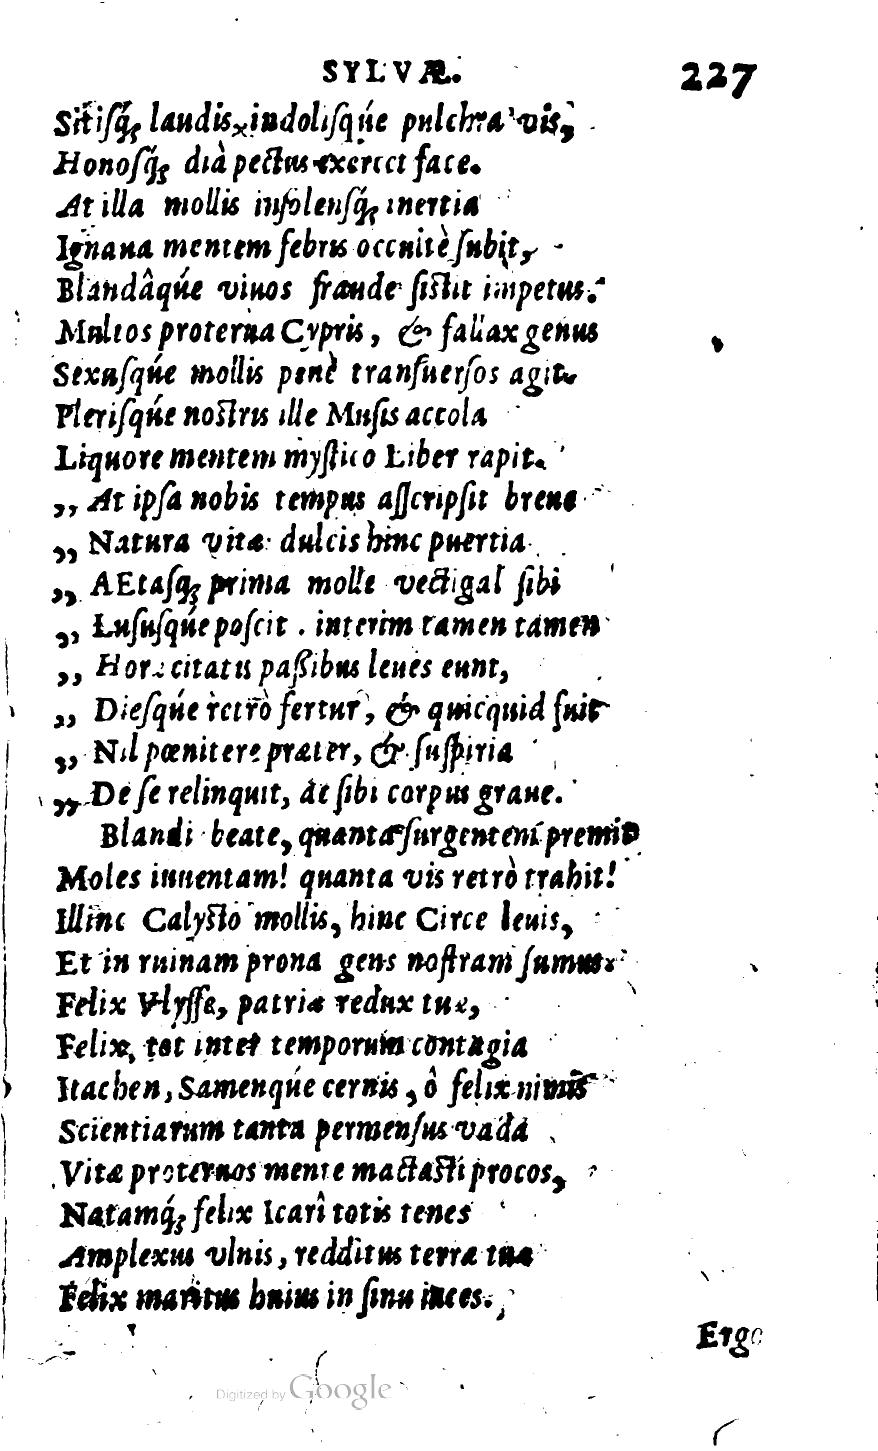 SYLVÆ. 227
Sitisq́; laudis, indolisqúe pulchra vis,
Honosq́; dià pectus exercet face.
At illa mollis insolensq́; inertia
Ignaua mentem febris occultè subit,
Blandâqúe viuos fraude sistit impetus.
Multos proterua Cypris, & fallax genus
Sexusqúe mollis penè transuersos agit.
Plerisqúe nostris ille Musis accola
Liquore mentem mystico Liber rapit.
,, At ipsa nobis tempus asscripsit breue
,, Natura vitæ: dulcis hinc puertia
,, AEtasq; prima molle vectigal sibi
,, Lususqúe poscit. interim tamen tamen
,, Horæ citatis passibus leues eunt,
,, Diesqúe retrò fertur, & quicquid fuit
,, Nil pœnitere præter, & suspiria
,, De se relinquit, at sibi corpus graue.
Blandi beate, quanta surgentem premit
Moles iuuentam! quanta vis retrò trahit!
Illinc Calysto mollis, hinc Circe leuis,
Et in ruinam prona gens nostram sumus.
Felix Vlysse, patriæ redux tuæ,
Felix, tot inter temporum contagia
Itachen, Samenqúe cernis, ô felix nimis
Scientiarum tanta permensus vada
Vitæ proteruos mente mactasti procos,
Natamq́; felix Icarî totis tenes
Amplexus vlnis, redditus terræ tuæ
Felix maritus huius in sinu iaces.
Ergo
Digitized by Google